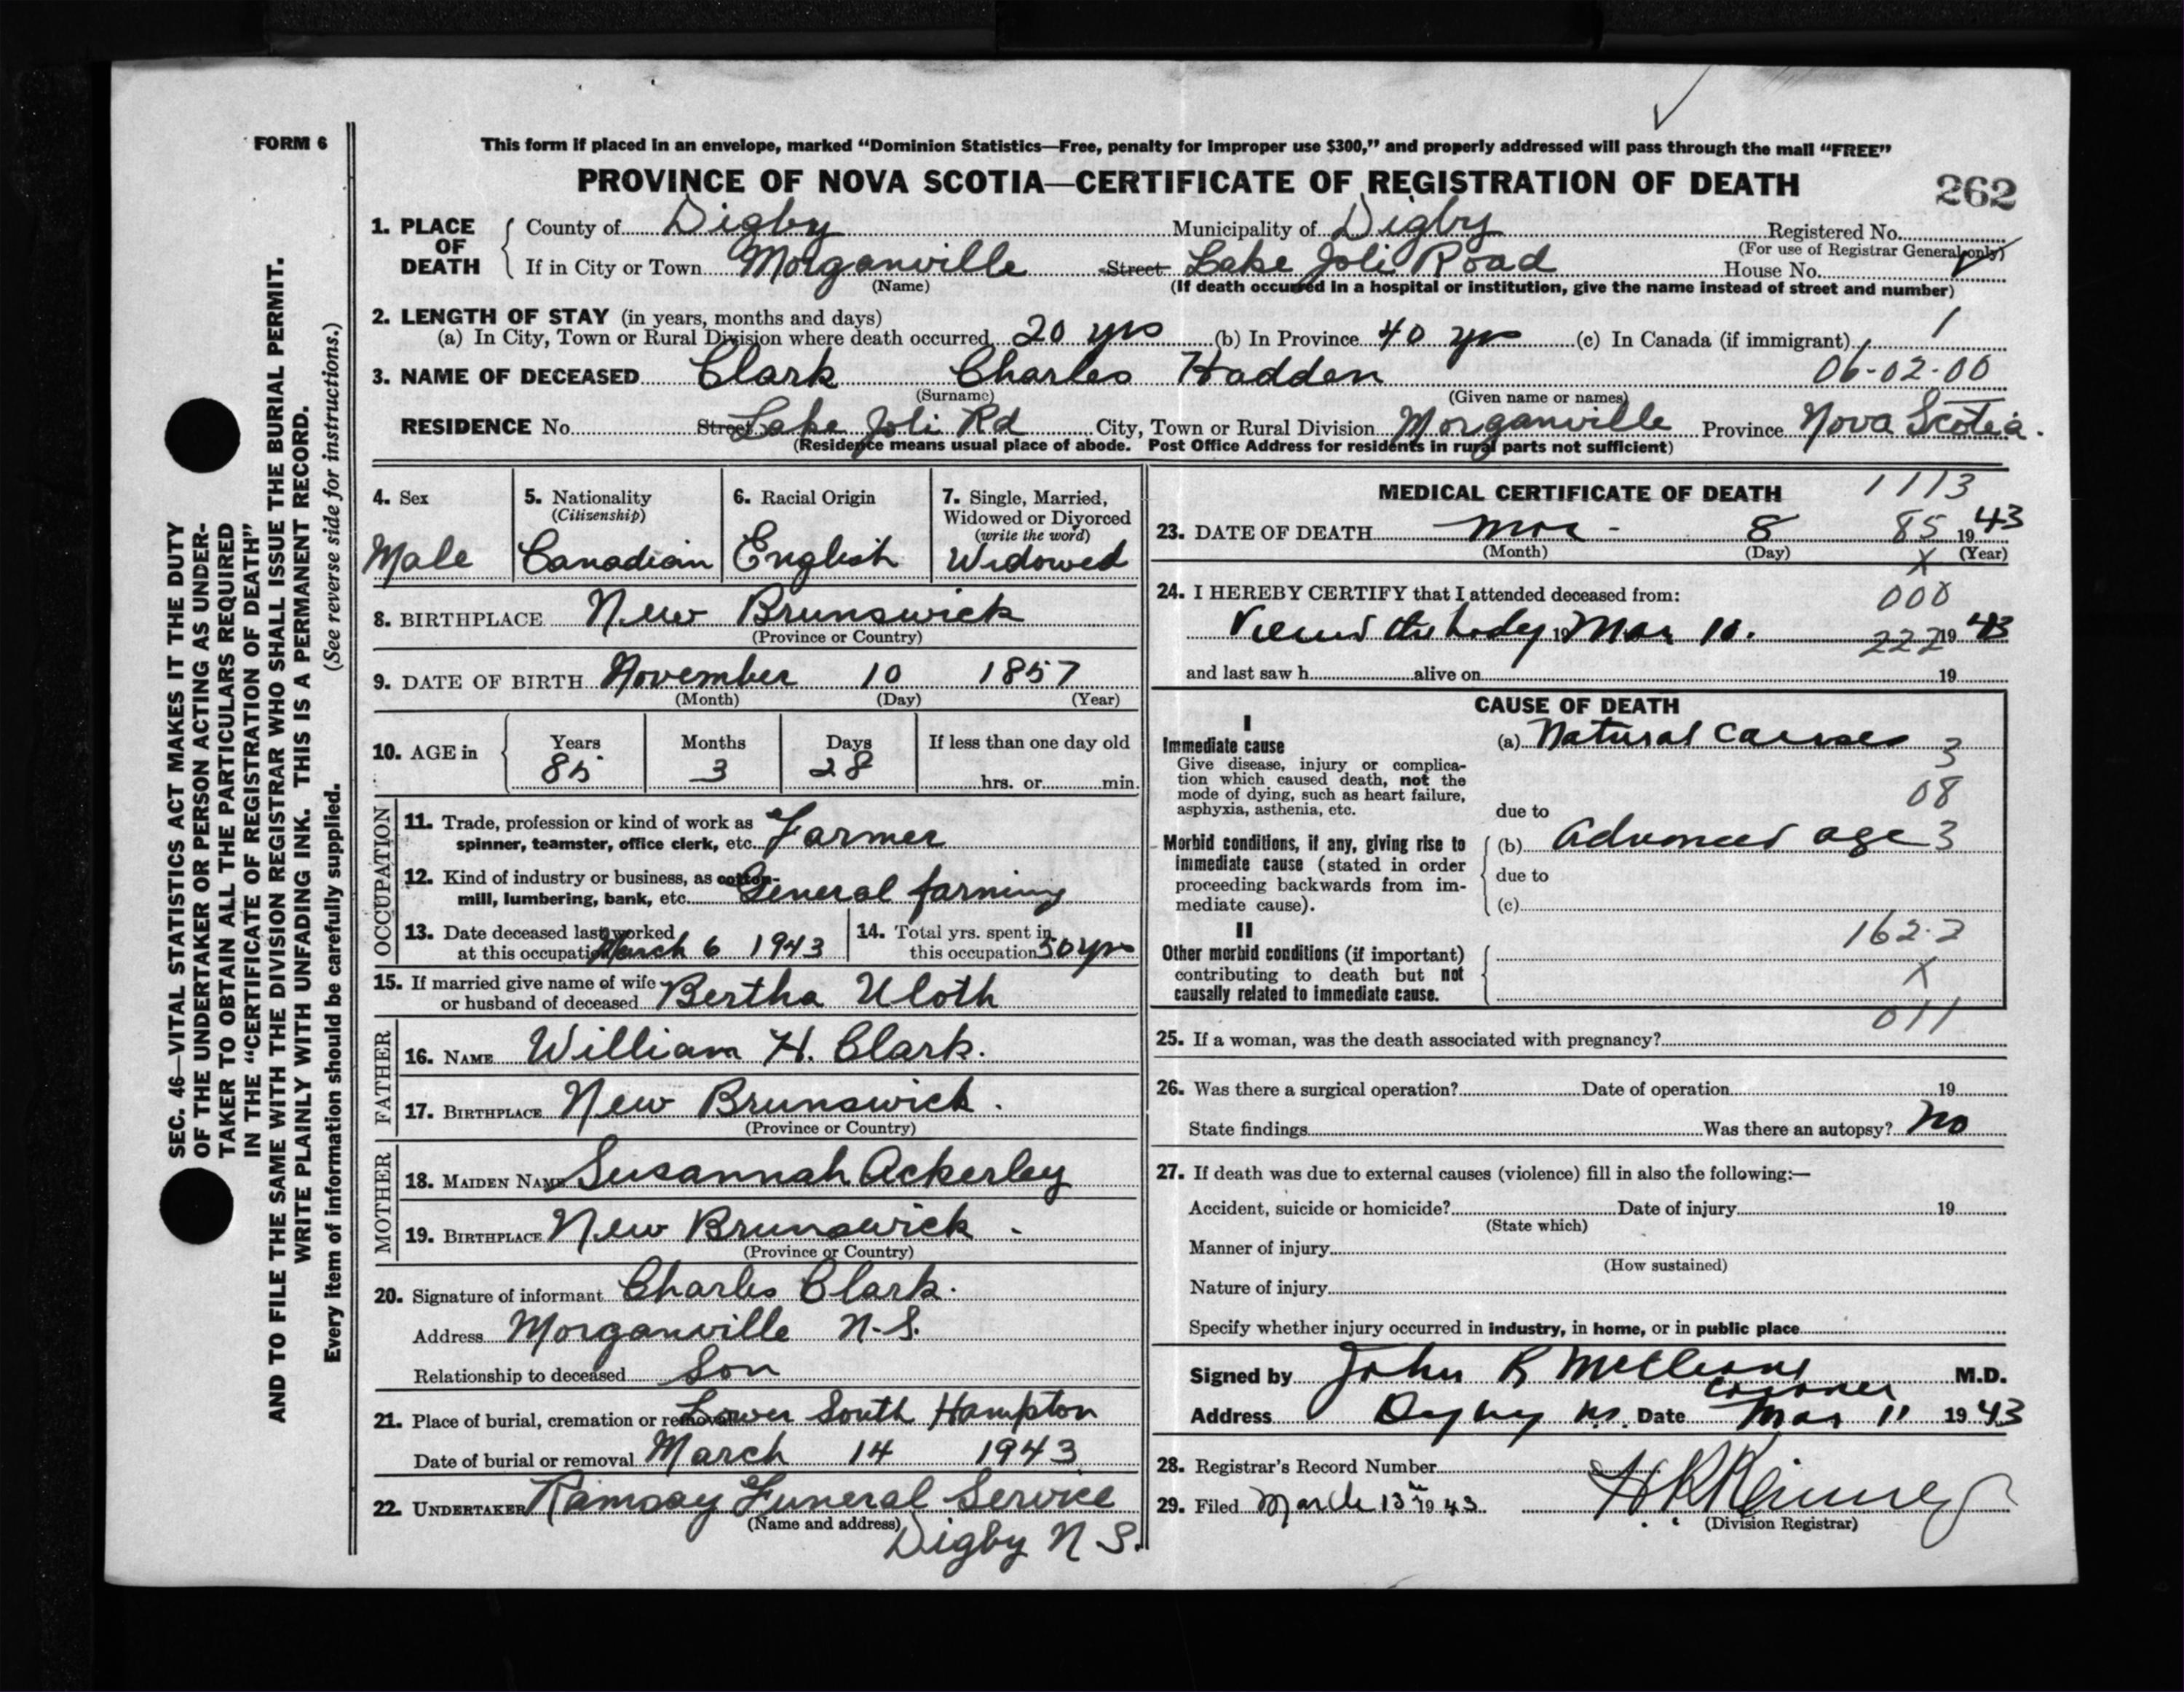 FORM 6
This form if placed in an envelope, marked “Dominion Statistics—Free, penalty for improper use $300,” and properly addressed will pass through the mail “FREE”
PROVINCE OF NOVA SCOTIA—CERTIFICATE OF REGISTRATION OF DEATH
262
1. PLACE OF DEATH
County of Digby Municipality of Digby Registered No.
(For use of Registrar General only)
If in City or Town Morganville Street Lake Joli Road House No.
(Name) (If death occurred in a hospital or institution, give the name instead of street and number)
2. LENGTH OF STAY (in years, months and days)
(a) In City, Town or Rural Division where death occurred 20 yrs (b) In Province 40 yrs (c) In Canada (if immigrant) 1
3. NAME OF DECEASED Clark Charles Hadden 06-02-00
(Surname) (Given name or names)
RESIDENCE No. Street Lake Joli Rd City, Town or Rural Division Morganville Province Nova Scotia.
(Residence means usual place of abode. Post Office Address for residents in rural parts not sufficient)
4. Sex
Male
5. Nationality
(Citizenship)
Canadian
6. Racial Origin
English
7. Single, Married,
Widowed or Divorced
(write the word)
Widowed
8. BIRTHPLACE New Brunswick
(Province or Country)
9. DATE OF BIRTH November 10 1857
(Month) (Day) (Year)
10. AGE in
Years Months Days If less than one day old
85 3 28 hrs. or min.
OCCUPATION
11. Trade, profession or kind of work as
spinner, teamster, office clerk, etc. Farmer
12. Kind of industry or business, as cotton-
mill, lumbering, bank, etc. General farming
13. Date deceased last worked
at this occupation March 6 1943
14. Total yrs. spent in
this occupation 50 yrs
15. If married give name of wife
or husband of deceased Bertha Uloth
FATHER
16. NAME William H. Clark.
17. BIRTHPLACE New Brunswick.
(Province or Country)
MOTHER
18. MAIDEN NAME Susannah Ackerley
19. BIRTHPLACE New Brunswick -
(Province or Country)
20. Signature of informant Charles Clark.
Address Morganville N.S.
Relationship to deceased Son
21. Place of burial, cremation or removal Lower South Hampton
Date of burial or removal March 14 1943
22. UNDERTAKER Ramsay Funeral Service
(Name and address)
Digby N S.
MEDICAL CERTIFICATE OF DEATH 1113
23. DATE OF DEATH Mar - 8 85 1943
(Month) (Day) X (Year)
24. I HEREBY CERTIFY that I attended deceased from: 000
Viewed the body 19 Mar 10. 222 19 43
and last saw h alive on 19
CAUSE OF DEATH
I
Immediate cause (a) Natural causes 3
Give disease, injury or complica-
tion which caused death, not the
mode of dying, such as heart failure,
asphyxia, asthenia, etc.
08
due to
Morbid conditions, if any, giving rise to
immediate cause (stated in order
proceeding backwards from im-
mediate cause).
(b) Advanced age 3
due to
(c)
162-2
II
Other morbid conditions (if important)
contributing to death but not
causally related to immediate cause.
X
011
25. If a woman, was the death associated with pregnancy?
26. Was there a surgical operation? Date of operation 19
State findings Was there an autopsy? No
27. If death was due to external causes (violence) fill in also the following:—
Accident, suicide or homicide? Date of injury 19
(State which)
Manner of injury
(How sustained)
Nature of injury
Specify whether injury occurred in industry, in home, or in public place
Signed by John R McCleave M.D.
coroner
Address Digby N.S. Date Mar 11 1943
28. Registrar's Record Number
29. Filed March 13th 1943
(Division Registrar)
SEC. 46—VITAL STATISTICS ACT MAKES IT THE DUTY
OF THE UNDERTAKER OR PERSON ACTING AS UNDER-
TAKER TO OBTAIN ALL THE PARTICULARS REQUIRED
IN THE “CERTIFICATE OF REGISTRATION OF DEATH”
AND TO FILE THE SAME WITH THE DIVISION REGISTRAR WHO SHALL ISSUE THE BURIAL PERMIT.
WRITE PLAINLY WITH UNFADING INK. THIS IS A PERMANENT RECORD.
Every item of information should be carefully supplied. (See reverse side for instructions.)